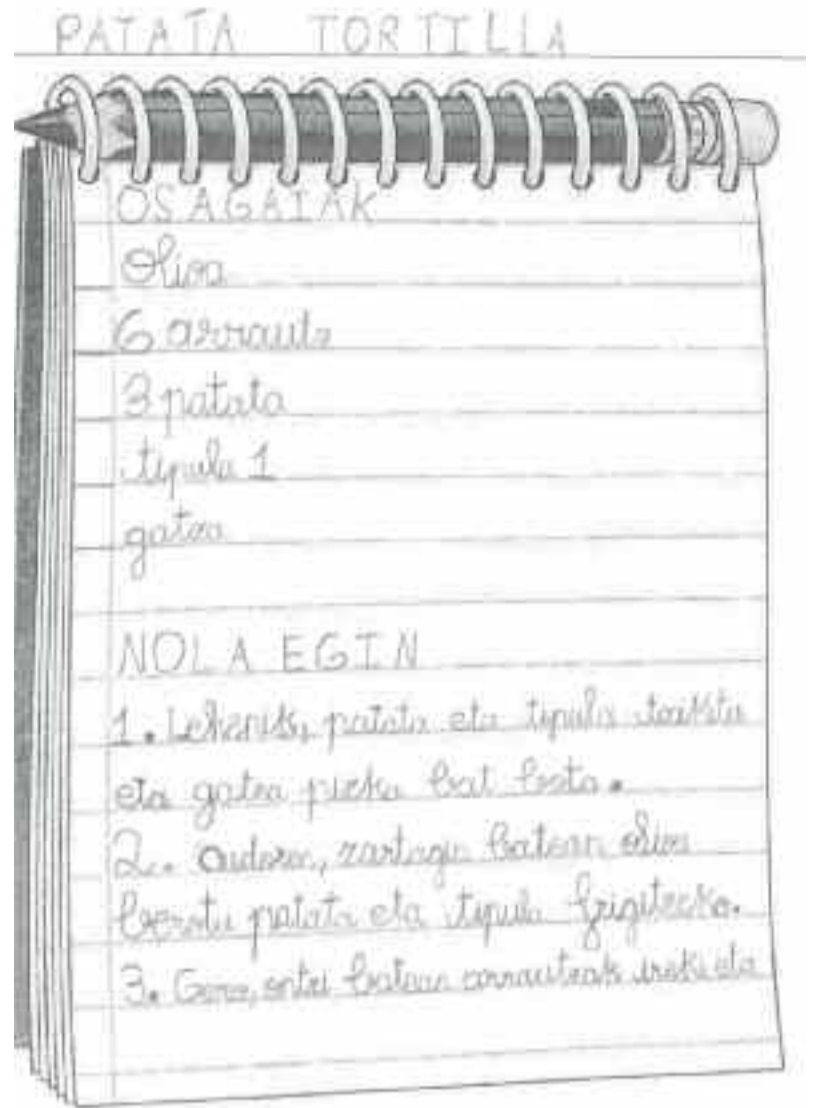 PATATA TORTILLA
OSAGAIAK
Oliva
6 arrautz
3 patata
tipula 1
gatza
NOLA EGIN
1. Lehenik, patata eta tipula
eta gatza bat bota.
2. zartagin batean oliva
berotu patata eta tipula frigitzeko.
3. Gero, ontzi batean arrautzak ireki eta